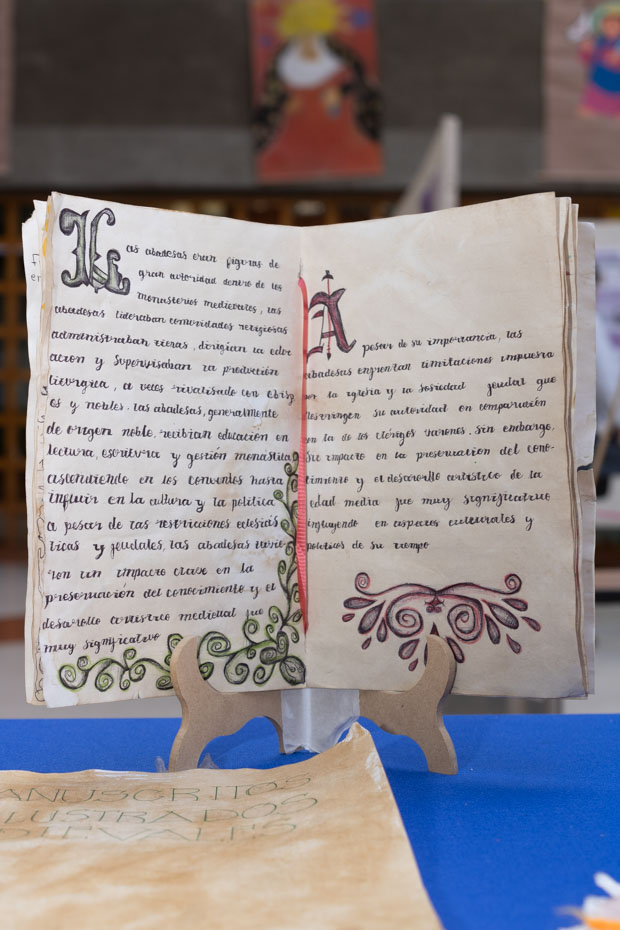 Las abadesas eran figuras de
gran autoridad dentro de los
monasterios medievales, las
abadesas lideraban comunidades religiosas
administraban tierras, dirigian la edu
acion y supervisaban la producción
liturgica, a veces rivalisado con obisp
os y nobles. las abadesas, generalmente
de origen noble, recibian educación en
lectura, escritura y gestión monástica
ascendiendo en los conventos hasta
influir en la cultura y la politica
a pesar de las restricciones eclesias
ticas y feudales, las abadesas tuvie
ron un impacto clave en la
preservacion del conocimiento y el
desarollo artistico medieval fue
muy significativo
A pesar de su importancia, las
abadesas enfrentan limitaciones impuesta
por la iglesia y la sosiedad feudal que
restringen su autoridad en comparación
con la de los clérigos varones. sin embargo,
su impacto en la preservacion del cono-
cimiento y el desarollo artistico de la
edad media fue muy significativo
influyendo en aspectos culturales y
politicos de su tiempo
ANUSCRITOS
LUSTRADOS
DIEVALES